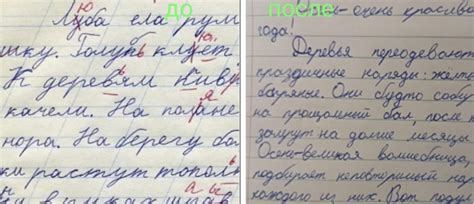 до
Люба ела рум
шку. Голубь клует
К деревям
качели. На паляне
нора. На берегу ба
ки растут тополь
после
очень красива
года!
Деревья переодевают
праздничные наряды: жёлт
багряные. Они будто собр
на прощальный бал, после к
замрут на долгие месяцы.
Осень-великая волшебница,
подбирает неповторимый нар
каждого из них. Вот